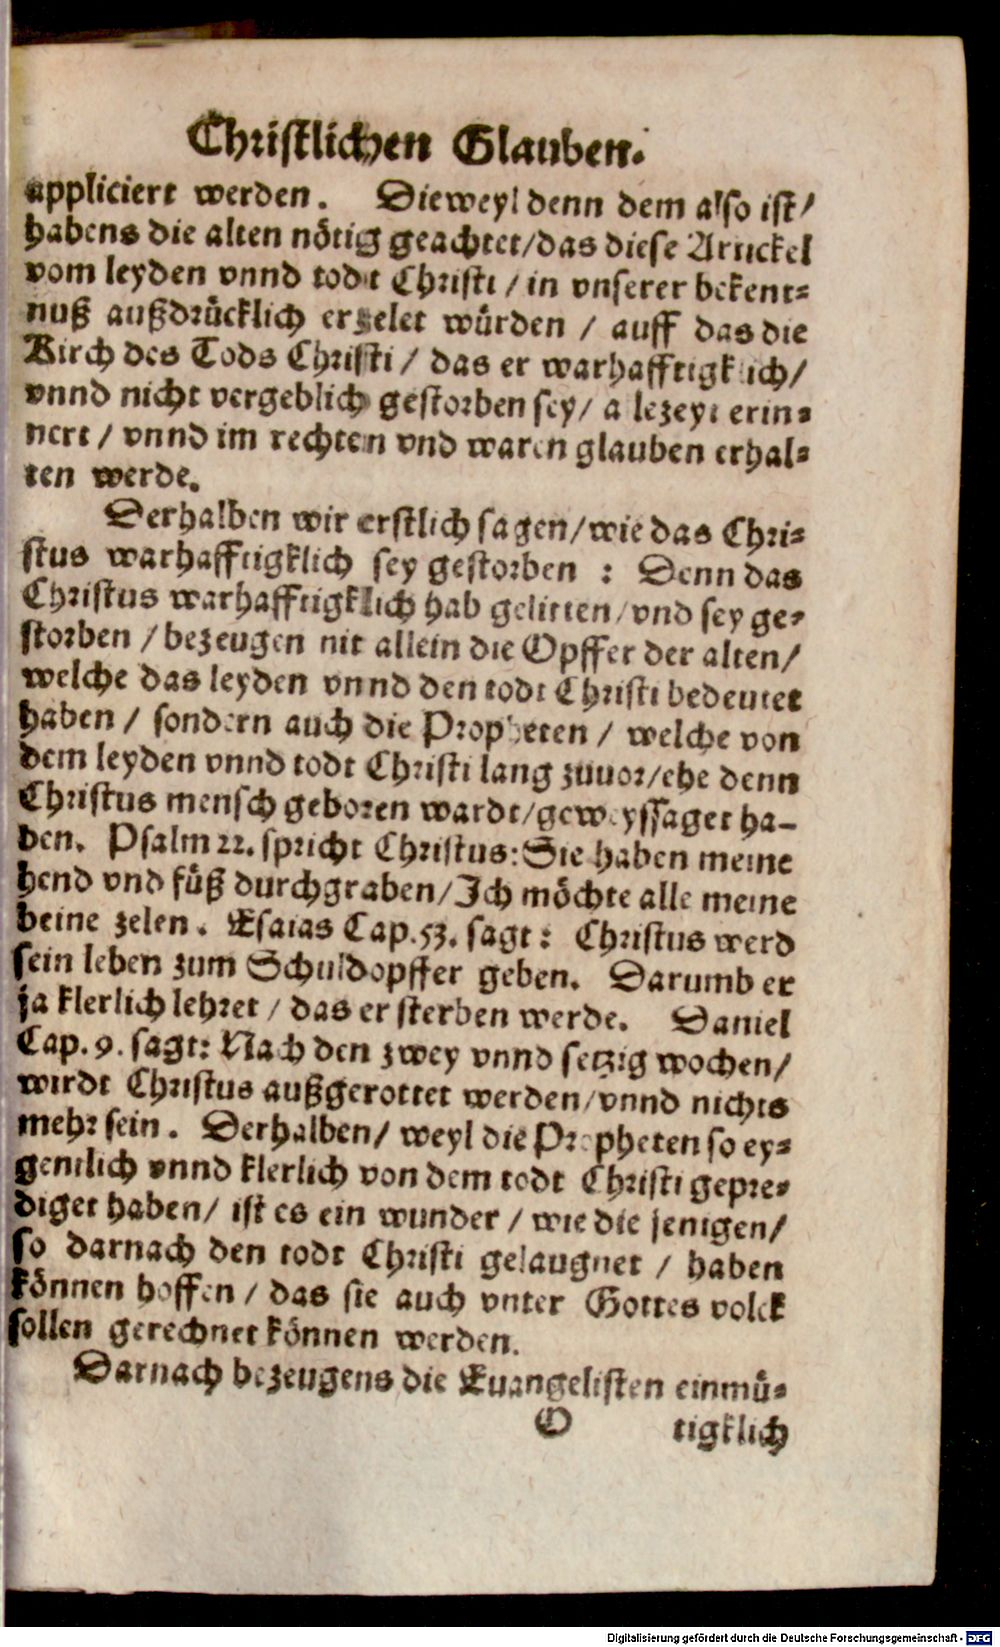 Christlichen Glauben.
appliciert werden. Dieweyl denn dem also ist/
habens die alten nötig geachtet/das diese Artickel
vom leyden vnnd todt Christi / in vnserer bekent⸗
nuß außdrücklich erzelet würden / auff das die
Kirch des Tods Christi / das er warhafftigklich/
vnnd nicht vergeblich gestorben sey/ allezeyt erin⸗
nert / vnnd im rechten vnd waren glauben erhal⸗
ten werde.
Derhalben wir erstlich sagen/wie das Chri⸗
stus warhafftigklich sey gestorben : Denn das
Christus warhafftigklich hab gelitten/vnd sey ge⸗
storben / bezeugen nit allein die Opffer der alten/
welche das leyden vnnd den todt Christi bedeutet
haben / sondern auch die Propheten / welche von
dem leyden vnnd todt Christi lang zuuor/ehe denn
Christus mensch geboren wardt/geweyssaget ha-
ben. Psalm 22. spricht Christus: Sie haben meine
hend vnd füß durchgraben/Ich möchte alle meine
beine zelen. Esaias Cap.53. sagt: Christus werd
sein leben zum Schuldopffer geben. Darumb er
ja klerlich lehret / das er sterben werde. Daniel
Cap. 9. sagt: Nach den zwey vnnd setzig wochen/
wirdt Christus außgerottet werden/vnnd nichts
mehr sein. Derhalben/ weyl die Propheten so ey⸗
gentlich vnnd klerlich von dem todt Christi gepre⸗
diget haben/ ist es ein wunder / wie die jenigen/
so darnach den todt Christi gelaugnet / haben
können hoffen / das sie auch vnter Gottes volck
sollen gerechnet können werden.
Darnach bezeugens die Euangelisten einmü⸗
O tigklich
Digitalisierung gefördert durch die Deutsche Forschungsgemeinschaft - DFG